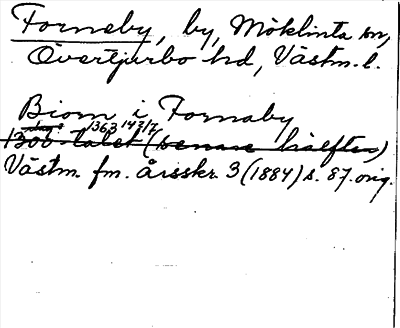 Fornaby, by, Möklinta sn,
Övertjurbo hd, Västm. l.
Biorn i Fornaby
1363 14/2 17
1300-talet (senare hälften)
Västm. fm. årsskr. 3 (1884) s. 87. orig.